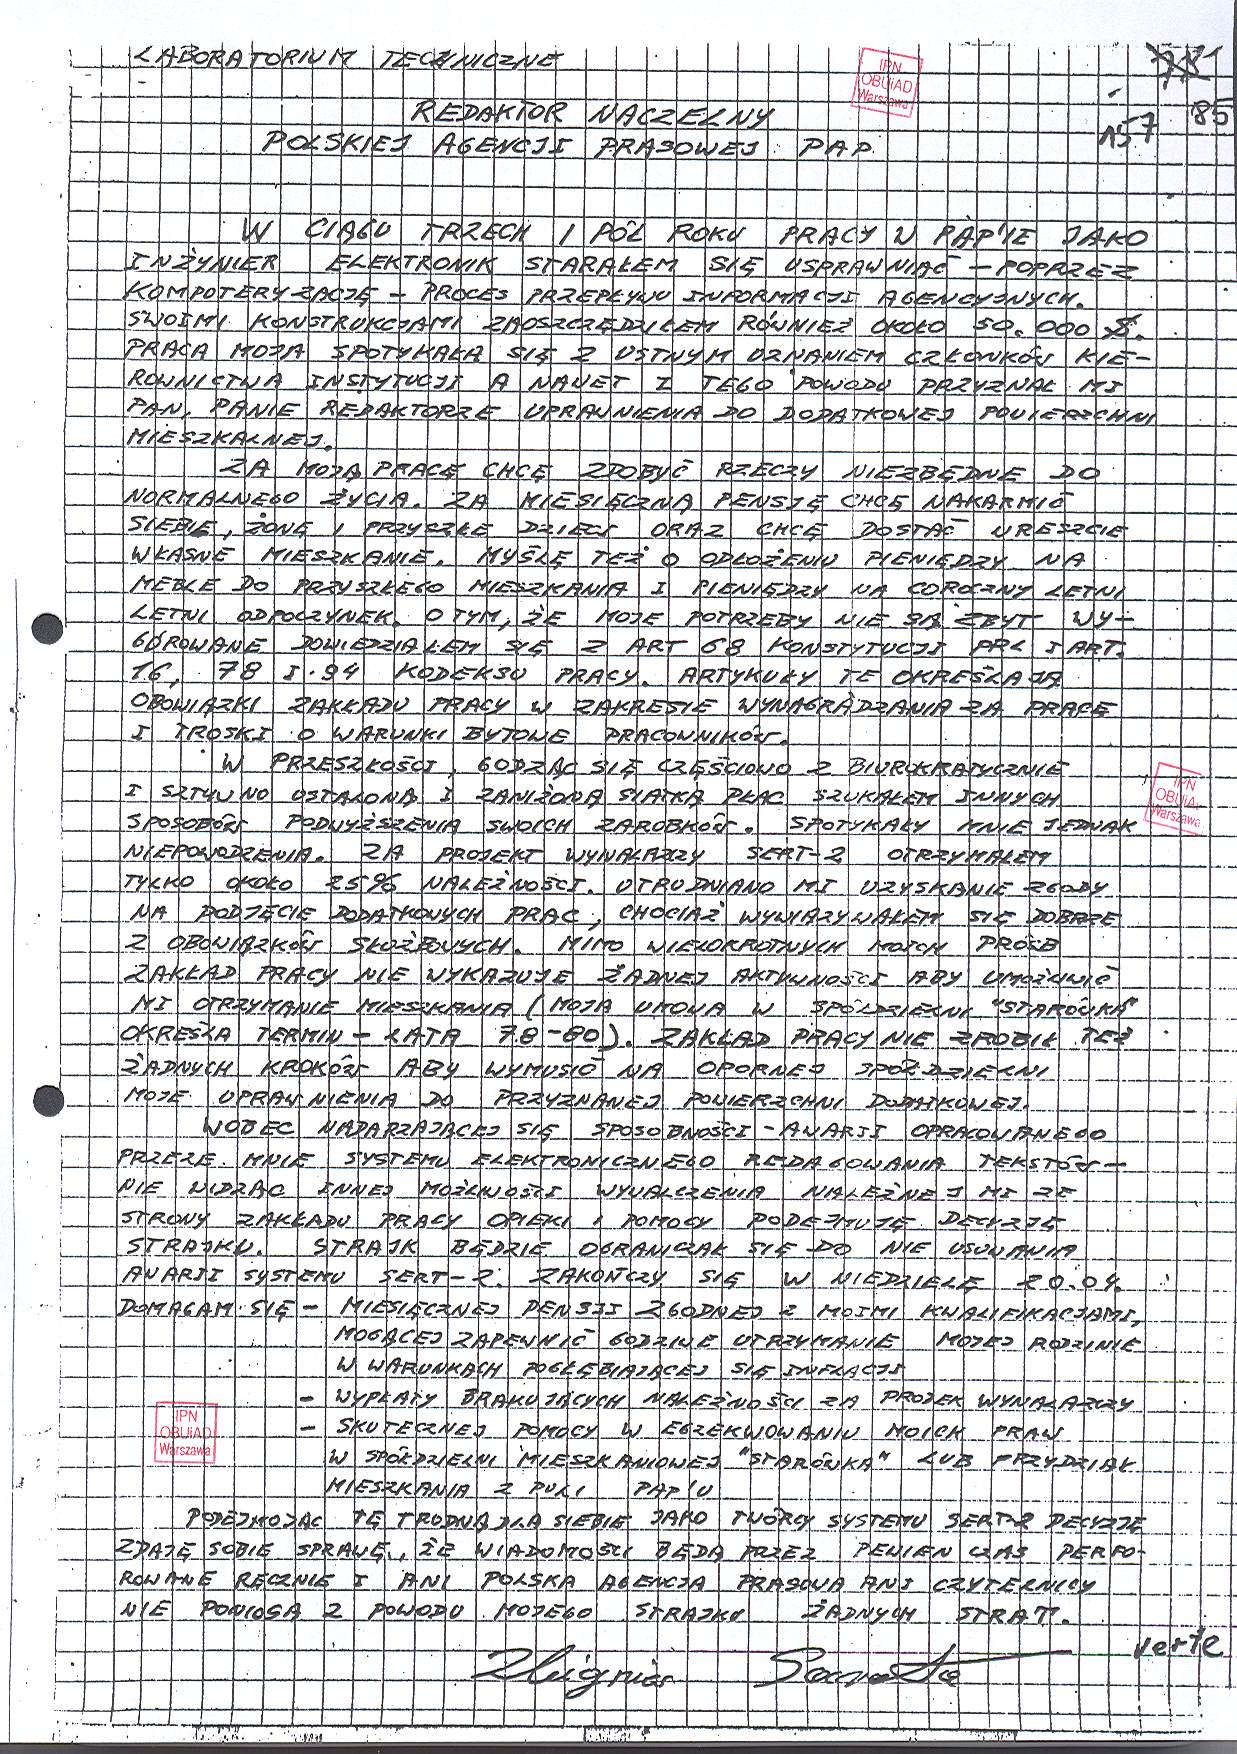 LABORATORIUM TECHNICZNE
IPN
OBUiAD
Warszawa
85
157
REDAKTOR NACZELNY
POLSKIEJ AGENCJI PRASOWEJ PAP
W CIĄGU TRZECH I PÓŁ ROKU PRACY W PAP'IE JAKO
INŻYNIER ELEKTRONIK STARAŁEM SIĘ USPRAWNIAĆ – POPRZEZ
KOMPUTERYZACJĘ – PROCES PRZEPŁYWU INFORMACJI AGENCYJNYCH.
SWOIMI KONSTRUKCJAMI ZAOSZCZĘDZIŁEM RÓWNIEŻ OKOŁO 50.000 $.
PRACA MOJA SPOTYKAŁA SIĘ Z USTNYM UZNANIEM CZŁONKÓW KIE-
ROWNICTWA INSTYTUCJI A NAWET Z TEGO POWODU PRZYZNAŁ MI
PAN, PANIE REDAKTORZE UPRAWNIENIA DO DODATKOWEJ POWIERZCHNI
MIESZKALNEJ.
ZA MOJĄ PRACĘ CHCĘ ZDOBYĆ RZECZY NIEZBĘDNE DO
NORMALNEGO ŻYCIA. ZA MIESIĘCZNĄ PENSJĘ CHCĘ NAKARMIĆ
SIEBIE, ŻONĘ I PRZYSZŁE DZIECI ORAZ CHCĘ DOSTAĆ WRESZCIE
WŁASNE MIESZKANIE. MYŚLĘ TEŻ O ODŁOŻENIU PIENIĘDZY NA
MEBLE DO PRZYSZŁEGO MIESZKANIA I PIENIĘDZY NA COROCZNY LETNI
LETNI ODPOCZYNEK. O TYM, ŻE MOJE POTRZEBY NIE SĄ ZBYT WY-
GÓROWANE DOWIEDZIAŁEM SIĘ Z ART 68 KONSTYTUCJI PRL I ART.
16, 78 I 94 KODEKSU PRACY. ARTYKUŁY TE OKREŚLAJĄ
OBOWIĄZKI ZAKŁADU PRACY W ZAKRESIE WYNAGRADZANIA ZA PRACĘ
I TROSKI O WARUNKI BYTOWE PRACOWNIKÓW.
W PRZESZŁOŚCI, GODZĄC SIĘ CZĘŚCIOWO Z BIUROKRATYCZNIE
I SZTYWNO USTALONĄ I ZANIŻONĄ SIATKĄ PŁAC SZUKAŁEM INNYCH
SPOSOBÓW PODWYŻSZENIA SWOICH ZAROBKÓW. SPOTYKAŁY MNIE JEDNAK
NIEPOWODZENIA. ZA PROJEKT WYNALAZCZY SERT-2 OTRZYMAŁEM
TYLKO OKOŁO 25% NALEŻNOŚCI. UTRUDNIANO MI UZYSKANIE ZGODY
NA PODJĘCIE DODATKOWYCH PRAC, CHOCIAŻ WYWIĄZYWAŁEM SIĘ DOBRZE
Z OBOWIĄZKÓW SŁUŻBOWYCH. MIMO WIELOKROTNYCH MOICH PRÓŚB
ZAKŁAD PRACY NIE WYKAZUJE ŻADNEJ AKTYWNOŚCI ABY UMOŻLIWIĆ
MI OTRZYMANIE MIESZKANIA (MOJA UMOWA W SPÓŁDZIELNI "STARÓWKA"
OKREŚLA TERMIN – LATA 78-80). ZAKŁAD PRACY NIE ZROBIŁ TEŻ
ŻADNYCH KROKÓW ABY WYMUSIĆ NA OPORNEJ SPÓŁDZIELNI
MOJE UPRAWNIENIA DO PRZYZNANEJ POWIERZCHNI DODATKOWEJ.
WOBEC NADARZAJĄCEJ SIĘ SPOSOBNOŚCI – AWARII OPRACOWANEGO
PRZEZE MNIE SYSTEMU ELEKTRONICZNEGO REDAGOWANIA TEKSTÓW –
NIE WIDZĄC INNEJ MOŻLIWOŚCI WYWALCZENIA NALEŻNEJ MI ZE
STRONY ZAKŁADU PRACY OPIEKI I POMOCY PODEJMUJĘ DECYZJĘ
STRAJKU. STRAJK BĘDZIE OGRANICZAŁ SIĘ DO NIE USUWANIA
AWARII SYSTEMU SERT-2. ZAKOŃCZY SIĘ W NIEDZIELĘ 20.04.
DOMAGAM SIĘ – MIESIĘCZNEJ PENSJI ZGODNEJ Z MOIMI KWALIFIKACJAMI,
MOGĄCEJ ZAPEWNIĆ GODZIWE UTRZYMANIE MOJEJ RODZINIE
W WARUNKACH POGŁĘBIAJĄCEJ SIĘ INFLACJI
– WYPŁATY BRAKUJĄCYCH NALEŻNOŚCI ZA PROJEK WYNALAZCZY
– SKUTECZNEJ POMOCY W EGZEKWOWANIU MOICH PRAW
W SPÓŁDZIELNI MIESZKANIOWEJ "STARÓWKA" LUB PRZYDZIAŁ
MIESZKANIA Z PULI PAP'U
PODEJMUJĄC TĘ TRUDNĄ DLA SIEBIE JAKO TWÓRCY SYSTEMU SERT-2 DECYZJĘ
ZDAJĘ SOBIE SPRAWĘ, ŻE WIADOMOŚCI BĘDĄ PRZEZ PEWIEN CZAS PERFO-
ROWANE RĘCZNIE I ANI POLSKA AGENCJA PRASOWA ANI CZYTELNICY
NIE PONIOSĄ Z POWODU MOJEGO STRAJKU ŻADNYCH STRAT.
verte
Zbigniew
IPN
OBUiAD
Warszawa
IPN
OBUiAD
Warszawa